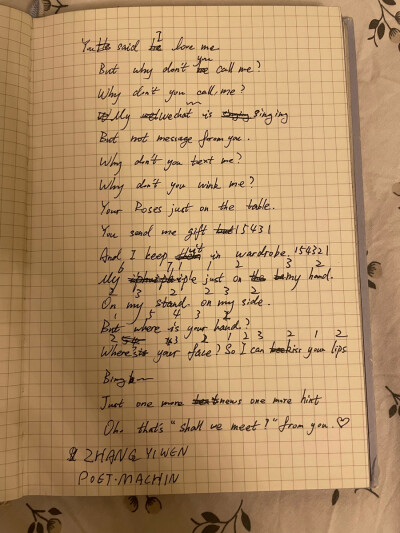 You said I love me
But why don't you call me?
Why don't you call me?
My wechat is singing
But not message from you.
Why don't you text me?
Why don't you wink me?
Your Roses just on the table.
You send me gift 15431
And I keep it in wardrobe. 154321
6 7 1 1 2 3 2
My just on my hand.
2 3 2 2 3 2
On my stand on my side.
1 5 4 3 2
But where is your hand?
2 3 2 1 2 3 2 1 2
Where's your face? So I can kiss your lips
Just one more news one more hint
Oh, that's "shall we meet?" from you. ♡
ZHANG YIWEN
POET-MACHIN